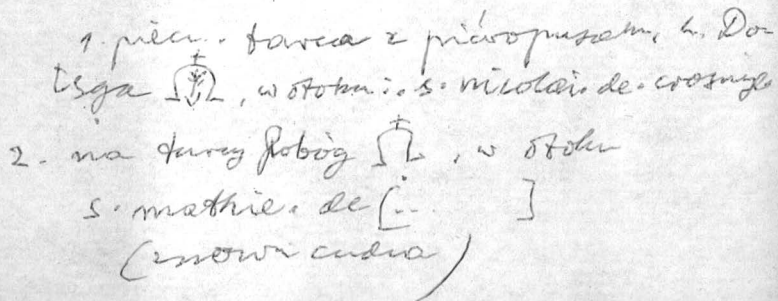 1. piecz. tarcza z pióropuszem, h. Do-
lęga , w otoku: . s. nicolai. de. crosnye
2. na tarczy Pobóg , w otoku
s. mathie. de [... ]
(znowu cudza)